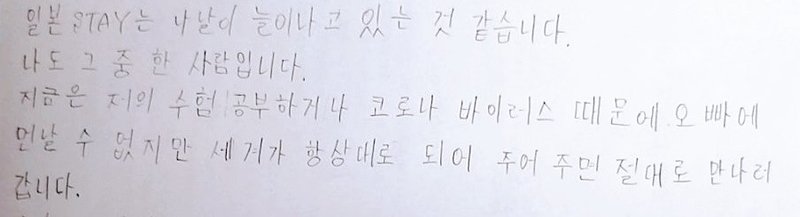 일본 STAY는 나날이 늘어나고 있는 것 같습니다.
나도 그 중 한 사람입니다.
지금은 저의 수험 공부하거나 코로나 바이러스 때문에 오빠에
만날 수 없지만 세계가 항상대로 되어 주어 주면 절대로 만나러
갑니다.